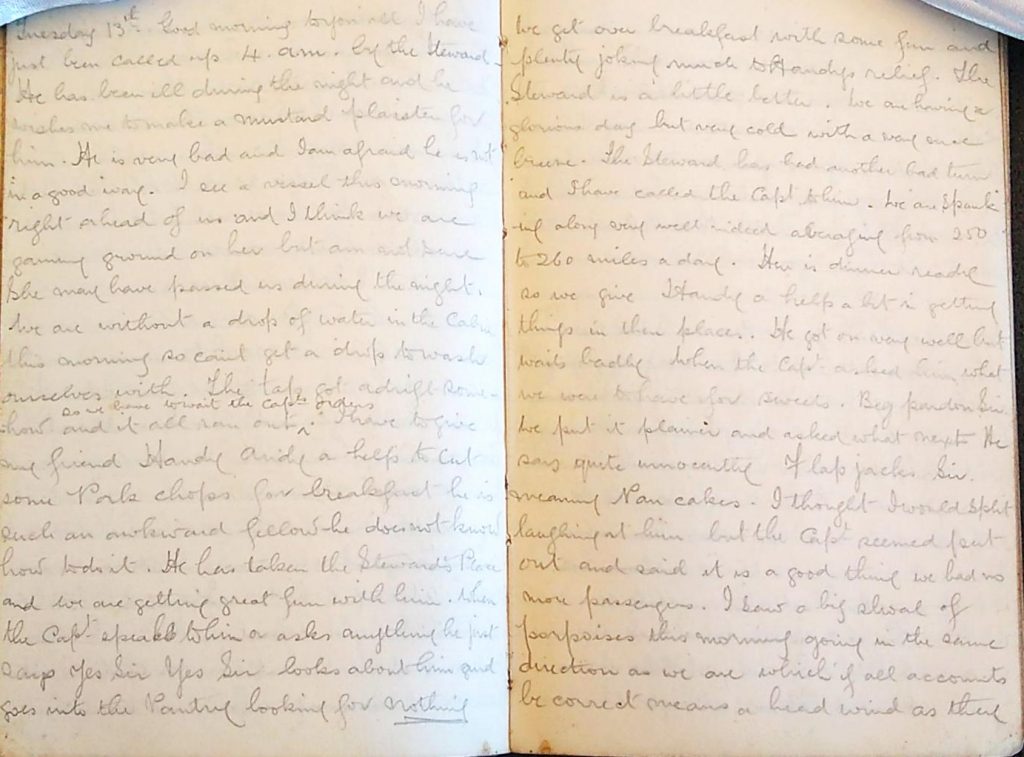 Tuesday 13th. Good morning to you all I have
just been called up 4. a.m. by the Steward -
He has been ill during the night and he
wishes me to make a mustard plaister for
him. He is very bad and I am afraid he is not
in a good way. I see a vessel this morning
right ahead of us and I think we are
gaining ground on her but am not sure
She may have passed us during the night.
We are without a drop of water in the Cabin
this morning so cant get a drip to wash
ourselves with. The tap got adrift some-
so we have to wait the Capts orders
how and it all ran out ^. I have to give
my friend Handy Andy a help to cut
some Pork chops for breakfast he is
such an awkward fellow he does not know
how to do it. He has taken the Steward's Place
and we are getting great fun with him. When
the Capt. speaks to him or asks anything he just
says Yes Sir Yes Sir looks about him and
goes into the Pantry looking for nothing
We get over breakfast with some fun and
plenty joking much to Handy's relief. The
Steward is a little better. We are having a
glorious day but very cold with a very nice
breeze. The Steward has had another bad turn
and I have called the Capt to him. We are Spank
ing along very well indeed averaging from 250
to 260 miles a day. Here is dinner ready
so we give Handy a help a bit in getting
things in their places. He got on very well but
waits badly when the Capt. asked him what
we were to have for sweets. Beg pardon Sir.
We put it plainer and asked what next He
says quite innocently Flap jacks Sir.
meaning Pan cakes. I thought I would split
laughing at him but the Capt seemed put
out and said it is a good thing we had no
more passengers. I saw a big shoal of
porpoises this morning going in the same
direction as we are which if all accounts
be correct means a head wind as they